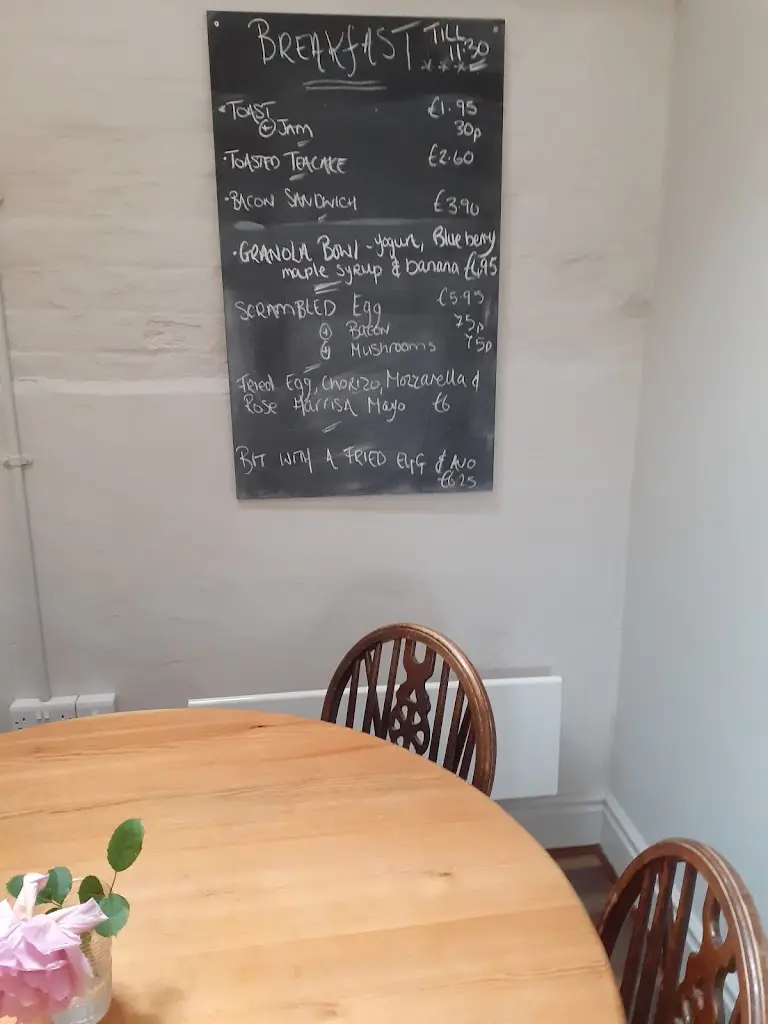 BREAKFAST TILL 11:30
TOAST £1.95
+ JAM 30p
TOASTED TEACAKE £2.60
BACON SANDWICH £3.90
GRANOLA BOWL - yogurt, Blueberry
maple syrup & banana £4.95
SCRAMBLED Egg £5.95
+ BACON 75p
+ Mushrooms 75p
Fried Egg, Chorizo, Mozzarella &
Rose Harrisa Mayo £6
BIT WITH A FRIED EGG & AVO
£6.25